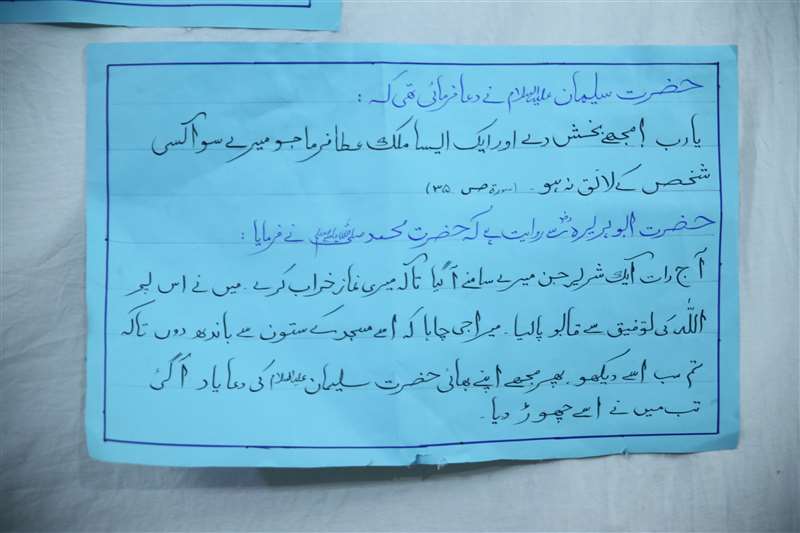 حضرت سلیمان علیہ السلام نے دعا فرمائی تھی کہ :
یا رب ! مجھے بخش دے اور ایک ایسا ملک عطا فرما جو میرے سوا کسی
شخص کے لائق نہ ہو۔ (سورۃ ص ۳۵)
حضرت ابو ہریرہؓ سے روایت ہے کہ حضرت محمد صلی اللہ علیہ وسلم نے فرمایا :
آج رات ایک شریر جن میرے سامنے آ گیا تاکہ میری نماز خراب کرے۔ میں نے اس پر
اللہ کی توفیق سے قابو پا لیا۔ میرا جی چاہا کہ اسے مسجد کے ستون سے باندھ دوں تاکہ
تم سب اسے دیکھو۔ پھر مجھے اپنے بھائی حضرت سلیمان علیہ السلام کی دعا یاد آ گئی
تب میں نے اسے چھوڑ دیا۔